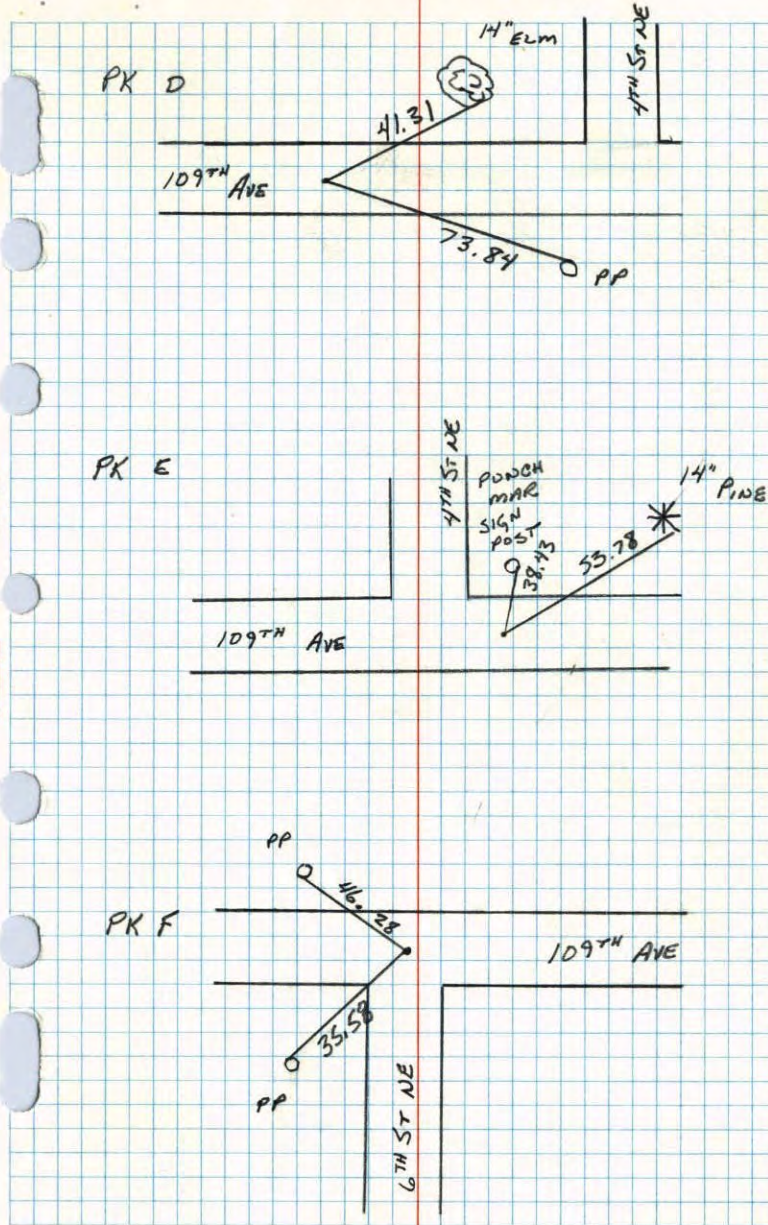 PK D
14" ELM
4TH ST NE
41.31
109TH AVE
73.84
PP
PK E
4TH ST NE
PUNCH
MAR
SIGN
POST
14" PINE
38.43
53.78
109TH AVE
PP
46.28
PK F
109TH AVE
35.58
PP
6TH ST NE